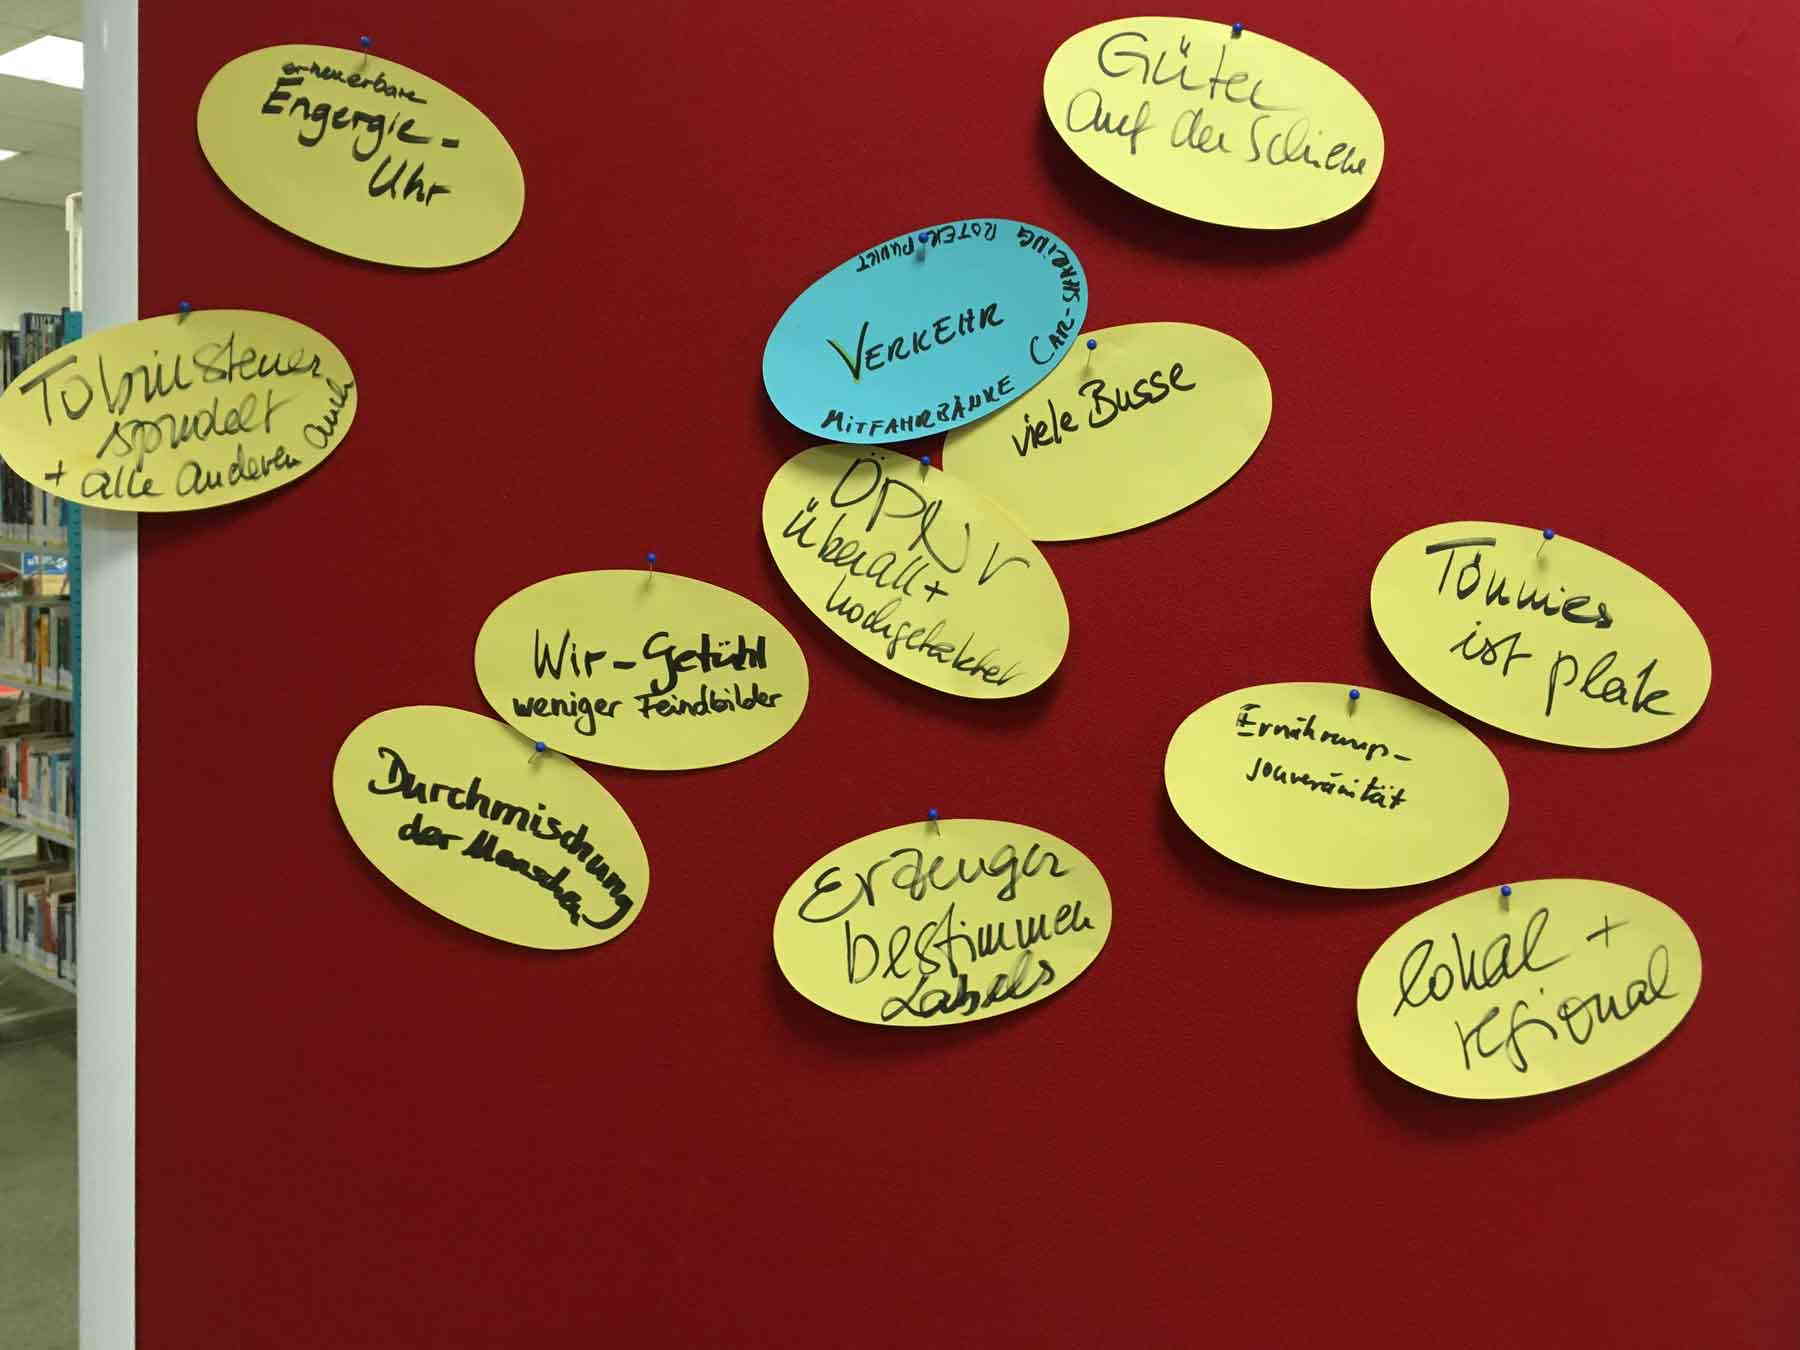 erneuerbare
Engergie-
Uhr
Güter
auf der Schiene
Tobinsteuer
sprudelt
+ alle anderen auch
ROTER PUNKT
CAR-SHARING
VERKEHR
MITFAHRBÄNKE
viele Busse
ÖPNV
überall +
hochgetaktet
Tönnies
ist pleite
Wir-Gefühl
weniger Feindbilder
Ernährungs-
souveränität
Durchmischung
der Menschen
Erzeuger
bestimmen
Labels
lokal +
regional